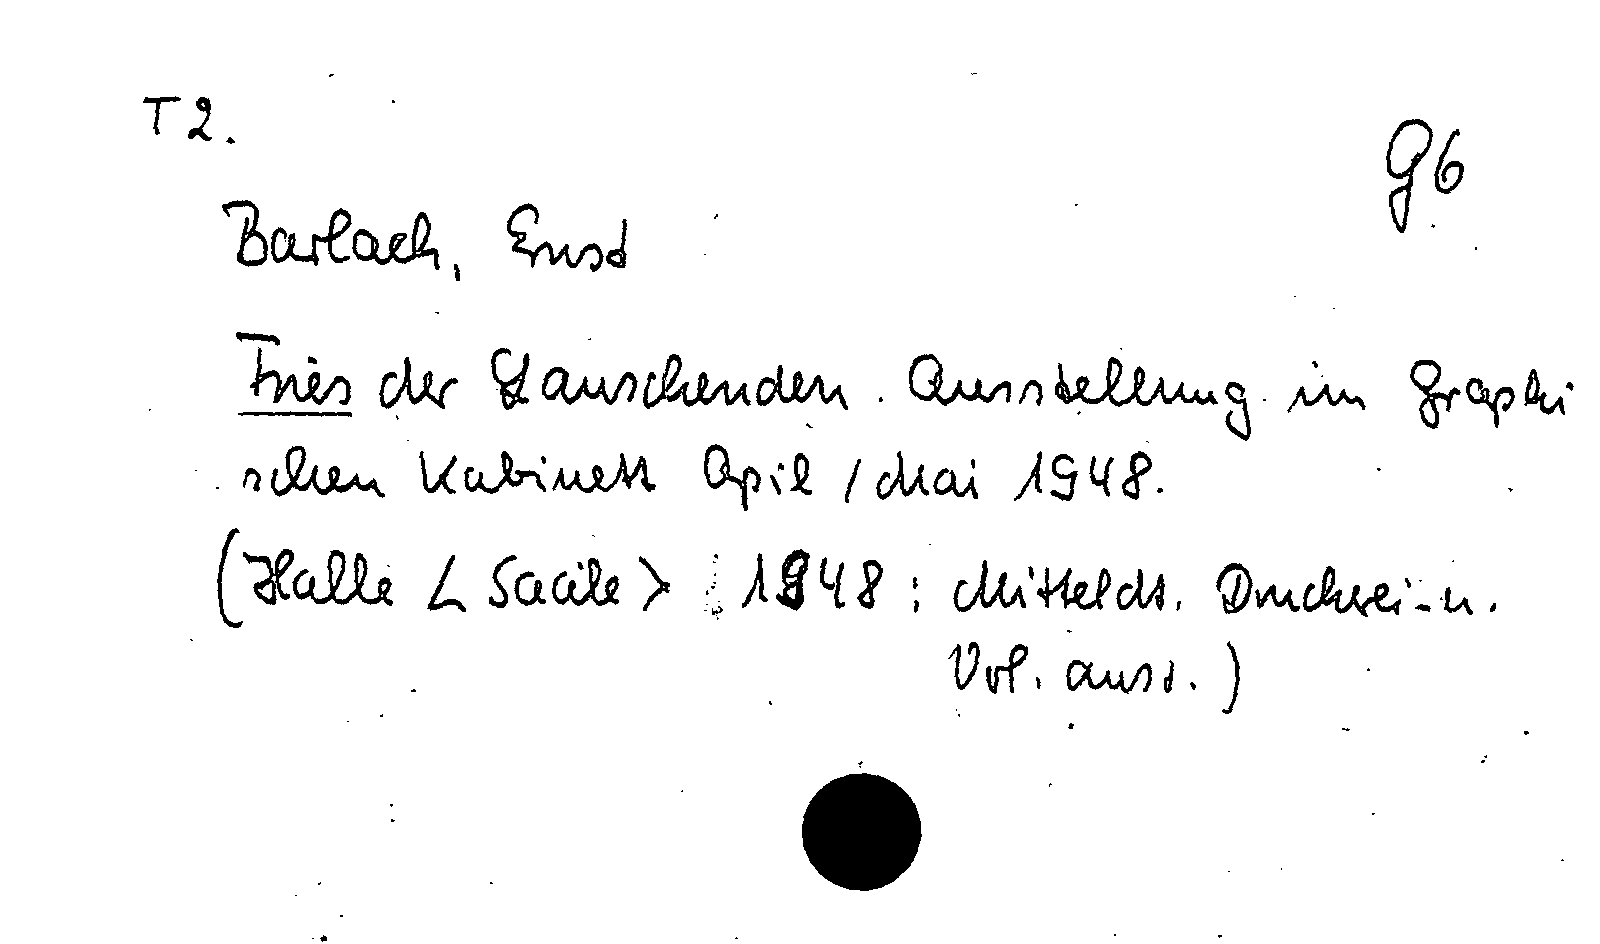 T 2.
G6
Barlach, Ernst
Fries der Lauschenden. Ausstellung im Graphi
schen Kabinett Apil / Mai 1948.
(Halle < Saale > 1948: Mitteldt. Druckerei- u.
Vrl. anst.)